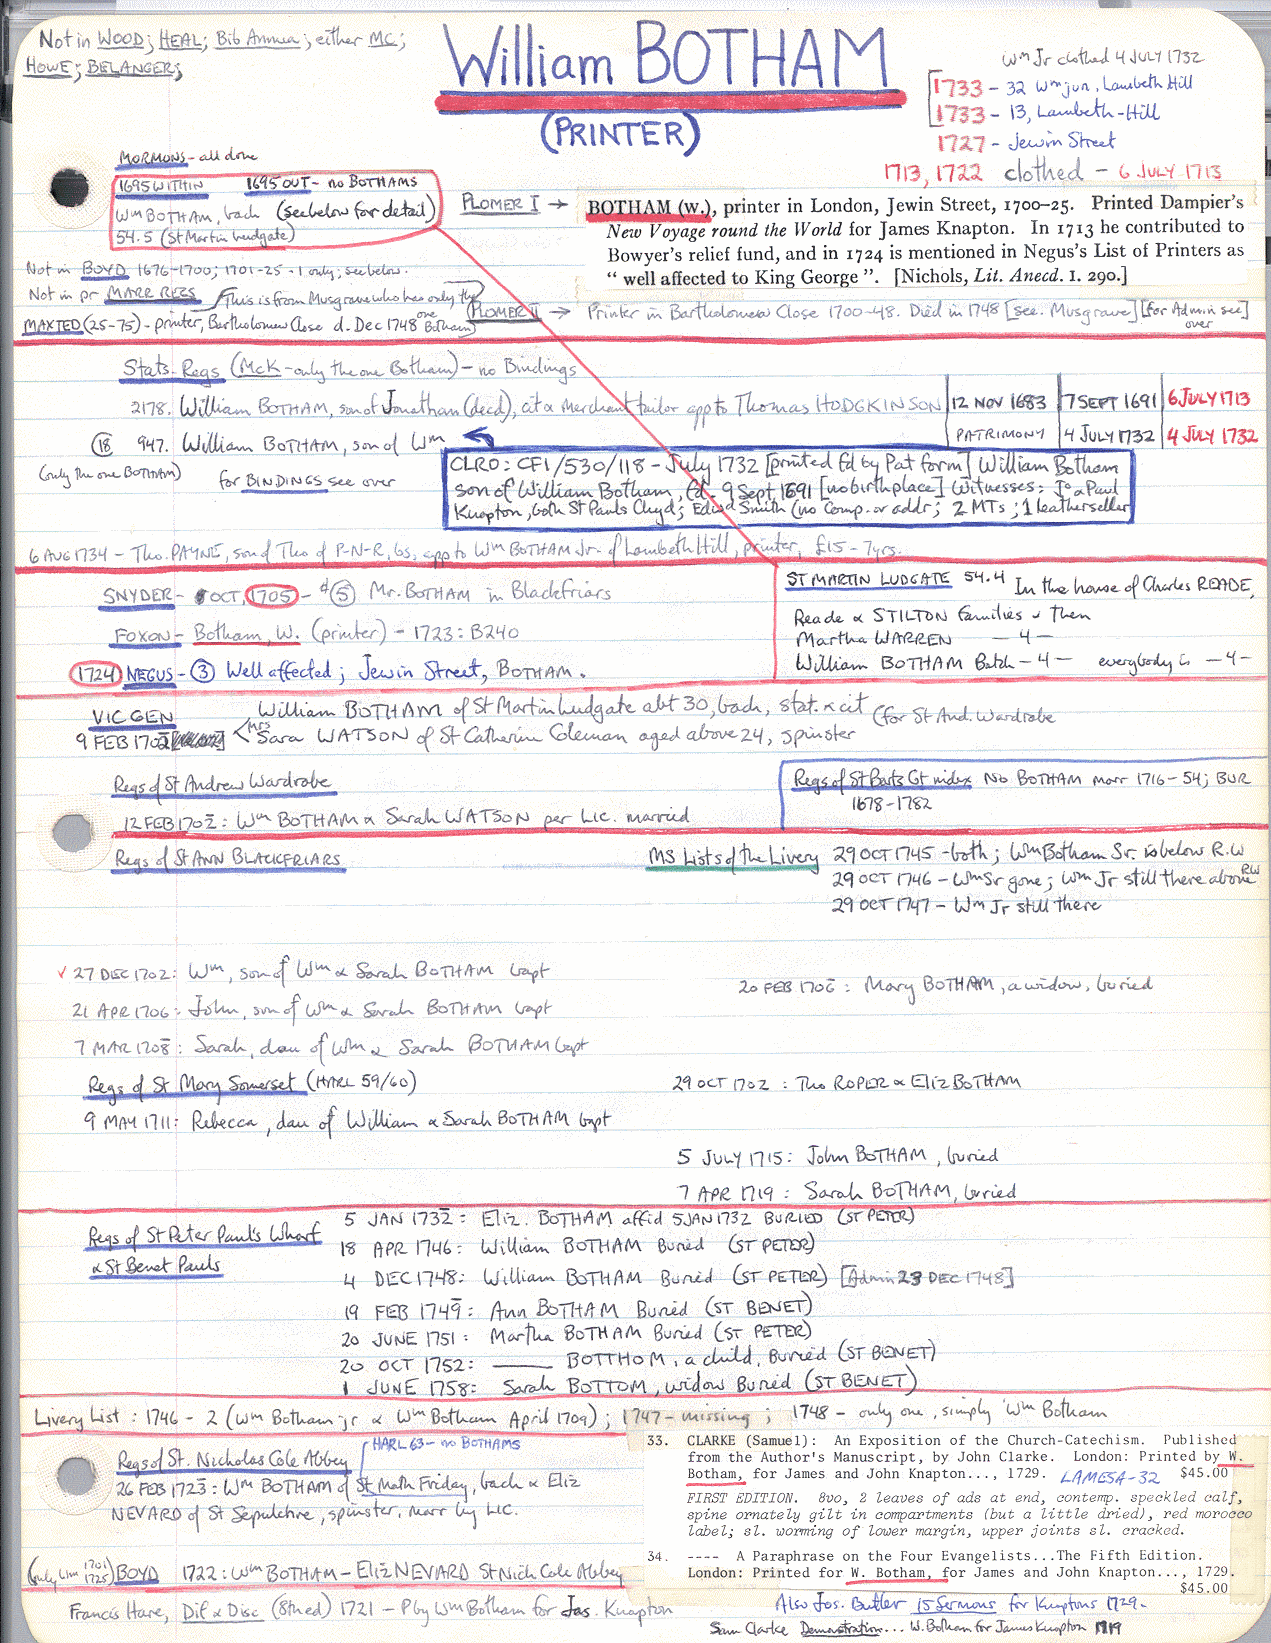 Not in WOOD; HEAL; Bib Annua; either MC;
HOWE; BELANGER;
William BOTHAM
(PRINTER)
Wm Jr clothed 4 JULY 1732
1733 - 32 Wm jun, Lambeth Hill
1733 - 13, Lambeth-Hill
1727 - Jewin Street
1713, 1722 clothed - 6 JULY 1713
MORMONS - all done
1695 WITHIN 1695 OUT - no BOTHAMS
Wm BOTHAM, bach (see below for detail)
54.5 (St Martin Ludgate)
PLOMER I →
BOTHAM (W.), printer in London, Jewin Street, 1700–25. Printed Dampier's
New Voyage round the World for James Knapton. In 1713 he contributed to
Bowyer's relief fund, and in 1724 is mentioned in Negus's List of Printers as
" well affected to King George ". [Nichols, Lit. Anecd. I. 290.]
Not in BOYD 1676-1700; 1701-25 - 1 only; see below.
Not in pr MARR REGS (This is from Musgrave who has only the one Botham)
MAXTED (25-75) - printer, Bartholomew Close d. Dec 1748
PLOMER II → Printer in Bartholomew Close 1700-48. Died in 1748 [see. Musgrave] [for Admin see over]
Stats. Regs (McK - only the one Botham) - no Bindings
2178. William BOTHAM, son of Jonathan (decd), cit & Merchant tailor app to Thomas HODGKINSON 12 NOV 1683 7 SEPT 1691 6 JULY 1713
18 947. William BOTHAM, son of Wm PATRIMONY 4 JULY 1732 4 JULY 1732
(only the one BOTHAM) for BINDINGS see over
CLRO: CF1/530/118 - July 1732 [printed fd by Pat form] William Botham
son of William Botham, fd. 9 Sept 1691 [no birthplace] Witnesses: Jo & Paul
Knapton, both St Pauls Chyd; Edwd Smith (no Comp. or addr; 2 MTs; 1 leatherseller
6 AUG 1734 - Tho. PAYNE, son of Tho of P-N-R, bs, app to Wm BOTHAM Jr. of Lambeth Hill, printer, £15 - 7yrs.
SNYDER - OCT, 1705 - ⑤ Mr. BOTHAM in Blackfriars
FOXON - Botham, W. (printer) - 1723: B240
1724 NEGUS - ③ Well affected; Jewin Street, BOTHAM.
ST MARTIN LUDGATE 54.4 In the house of Charles READE,
Reade & STILTON families & then
Martha WARREN — 4 —
William BOTHAM Batch - 4 - everybody is - 4 -
VIC GEN William BOTHAM of St Martin Ludgate abt 30, bach, stat. & cit (for St And. Wardrobe
9 FEB 1702 Mrs Sara WATSON of St Catherine Coleman aged above 24, spinster
Regs of St Andrew Wardrobe
12 FEB 1702: Wm BOTHAM & Sarah WATSON per Lic. married
Regs of St Barts Gt index No BOTHAM marr 1716-54; BUR
1678-1782
Regs of St ANN BLACKFRIARS
MS Lists of the Livery 29 OCT 1745 - both; Wm Botham Sr. is below R.W
29 OCT 1746 - Wm Sr gone; Wm Jr still there above RW
29 OCT 1747 - Wm Jr still there
✓ 27 DEC 1702: Wm, son of Wm & Sarah BOTHAM bapt
20 FEB 1706: Mary BOTHAM, a widow, buried
21 APR 1706: John, son of Wm & Sarah BOTHAM bapt
7 MAR 1708: Sarah, dau of Wm & Sarah BOTHAM bapt
Regs of St Mary Somerset (HARL 59/60)
29 OCT 1702: Tho ROPER & Eliz BOTHAM
9 MAY 1711: Rebecca, dau of William & Sarah BOTHAM bapt
5 JULY 1715: John BOTHAM, buried
7 APR 1719: Sarah BOTHAM, buried
Regs of St Peter Paul's Wharf
& St Benet Pauls
5 JAN 1732: Eliz. BOTHAM affid 5 JAN 1732 BURIED (ST PETER)
18 APR 1746: William BOTHAM Buried (ST PETER)
4 DEC 1748: William BOTHAM Buried (ST PETER) [Admin 23 DEC 1748]
19 FEB 1749: Ann BOTHAM Buried (ST BENET)
20 JUNE 1751: Martha BOTHAM Buried (ST PETER)
20 OCT 1752: —— BOTTHOM, a child, Buried (ST BENET)
1 JUNE 1758: Sarah BOTTOM, widow Buried (ST BENET)
Livery List: 1746 - 2 (Wm Botham jr & Wm Botham April 1709); 1747 - missing; 1748 - only one, simply Wm Botham
Regs of St. Nicholas Cole Abbey HARL 63 - no BOTHAMS
26 FEB 1723: Wm BOTHAM of St Math Friday, bach & Eliz
NEVARD of St Sepulchre, spinster, marr by Lic.
33. CLARKE (Samuel): An Exposition of the Church-Catechism. Published
from the Author's Manuscript, by John Clarke. London: Printed by W.
Botham, for James and John Knapton..., 1729. LAMESA-32 $45.00
FIRST EDITION. 8vo, 2 leaves of ads at end, contemp. speckled calf,
spine ornately gilt in compartments (but a little dried), red morocco
label; sl. worming of lower margin, upper joints sl. cracked.
34. ---- A Paraphrase on the Four Evangelists...The Fifth Edition.
London: Printed for W. Botham, for James and John Knapton..., 1729.
$45.00
(only Wm 1701 1725) BOYD 1722: Wm BOTHAM - Eliz NEVARD St Nich Cole Abbey
Francis Hare, Dif & Disc (8th ed) 1721 - P by Wm Botham for Jas. Knapton
Also Jos. Butler 15 Sermons for Knaptons 1729.
Sam Clarke Demonstration... W. Botham for James Knapton 1719